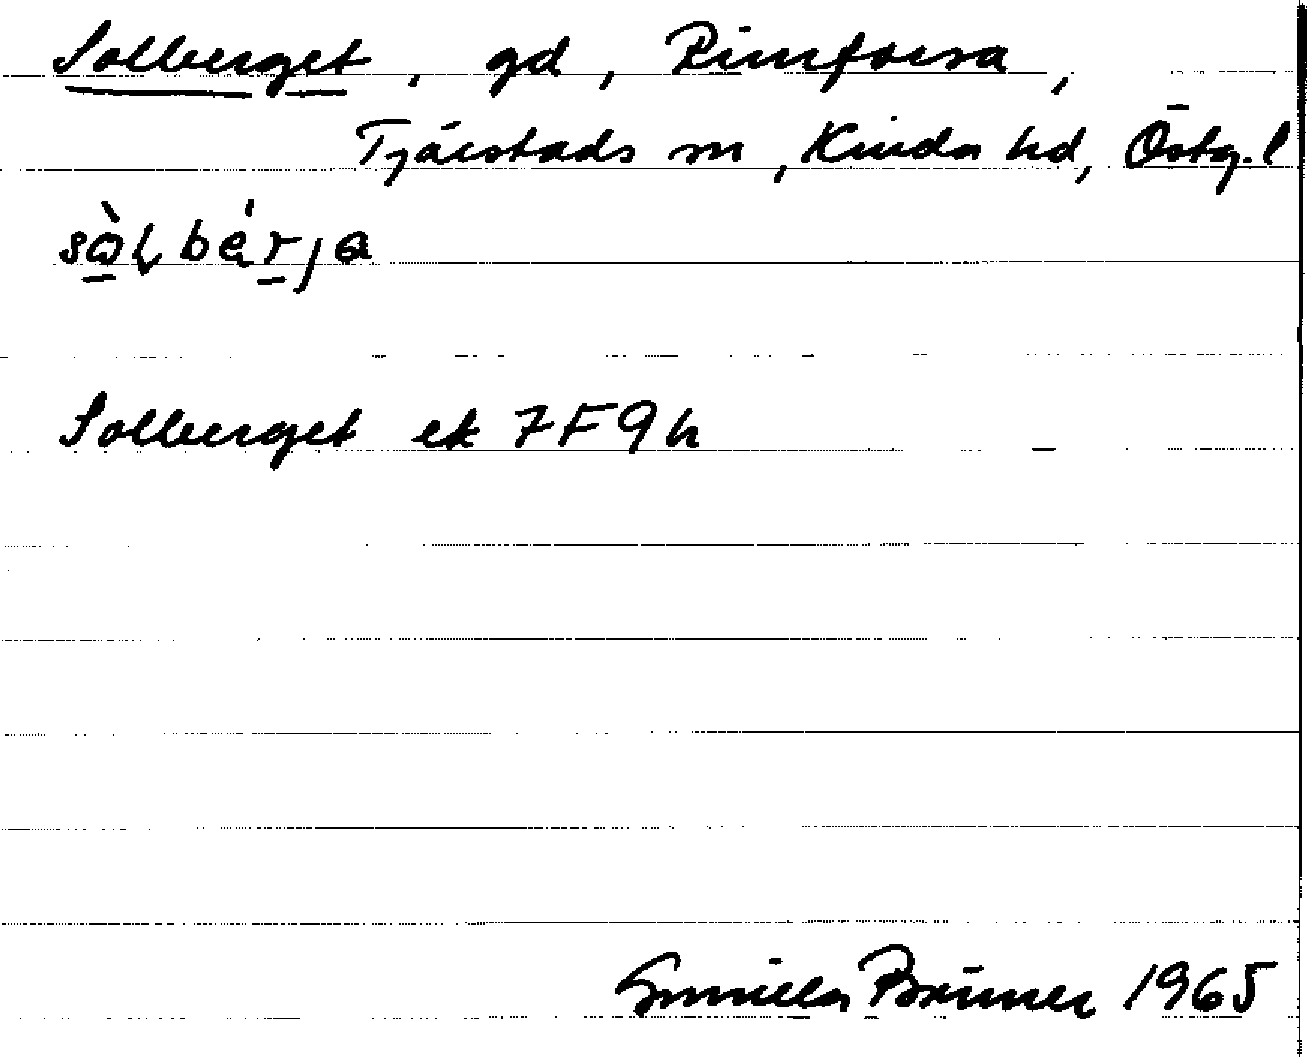 Solberget, gd, Rimforsa,
Tjärstads sn, Kinda hd, Östg. l
Solberget ek 7F9h
Gunilla Brünner 1965